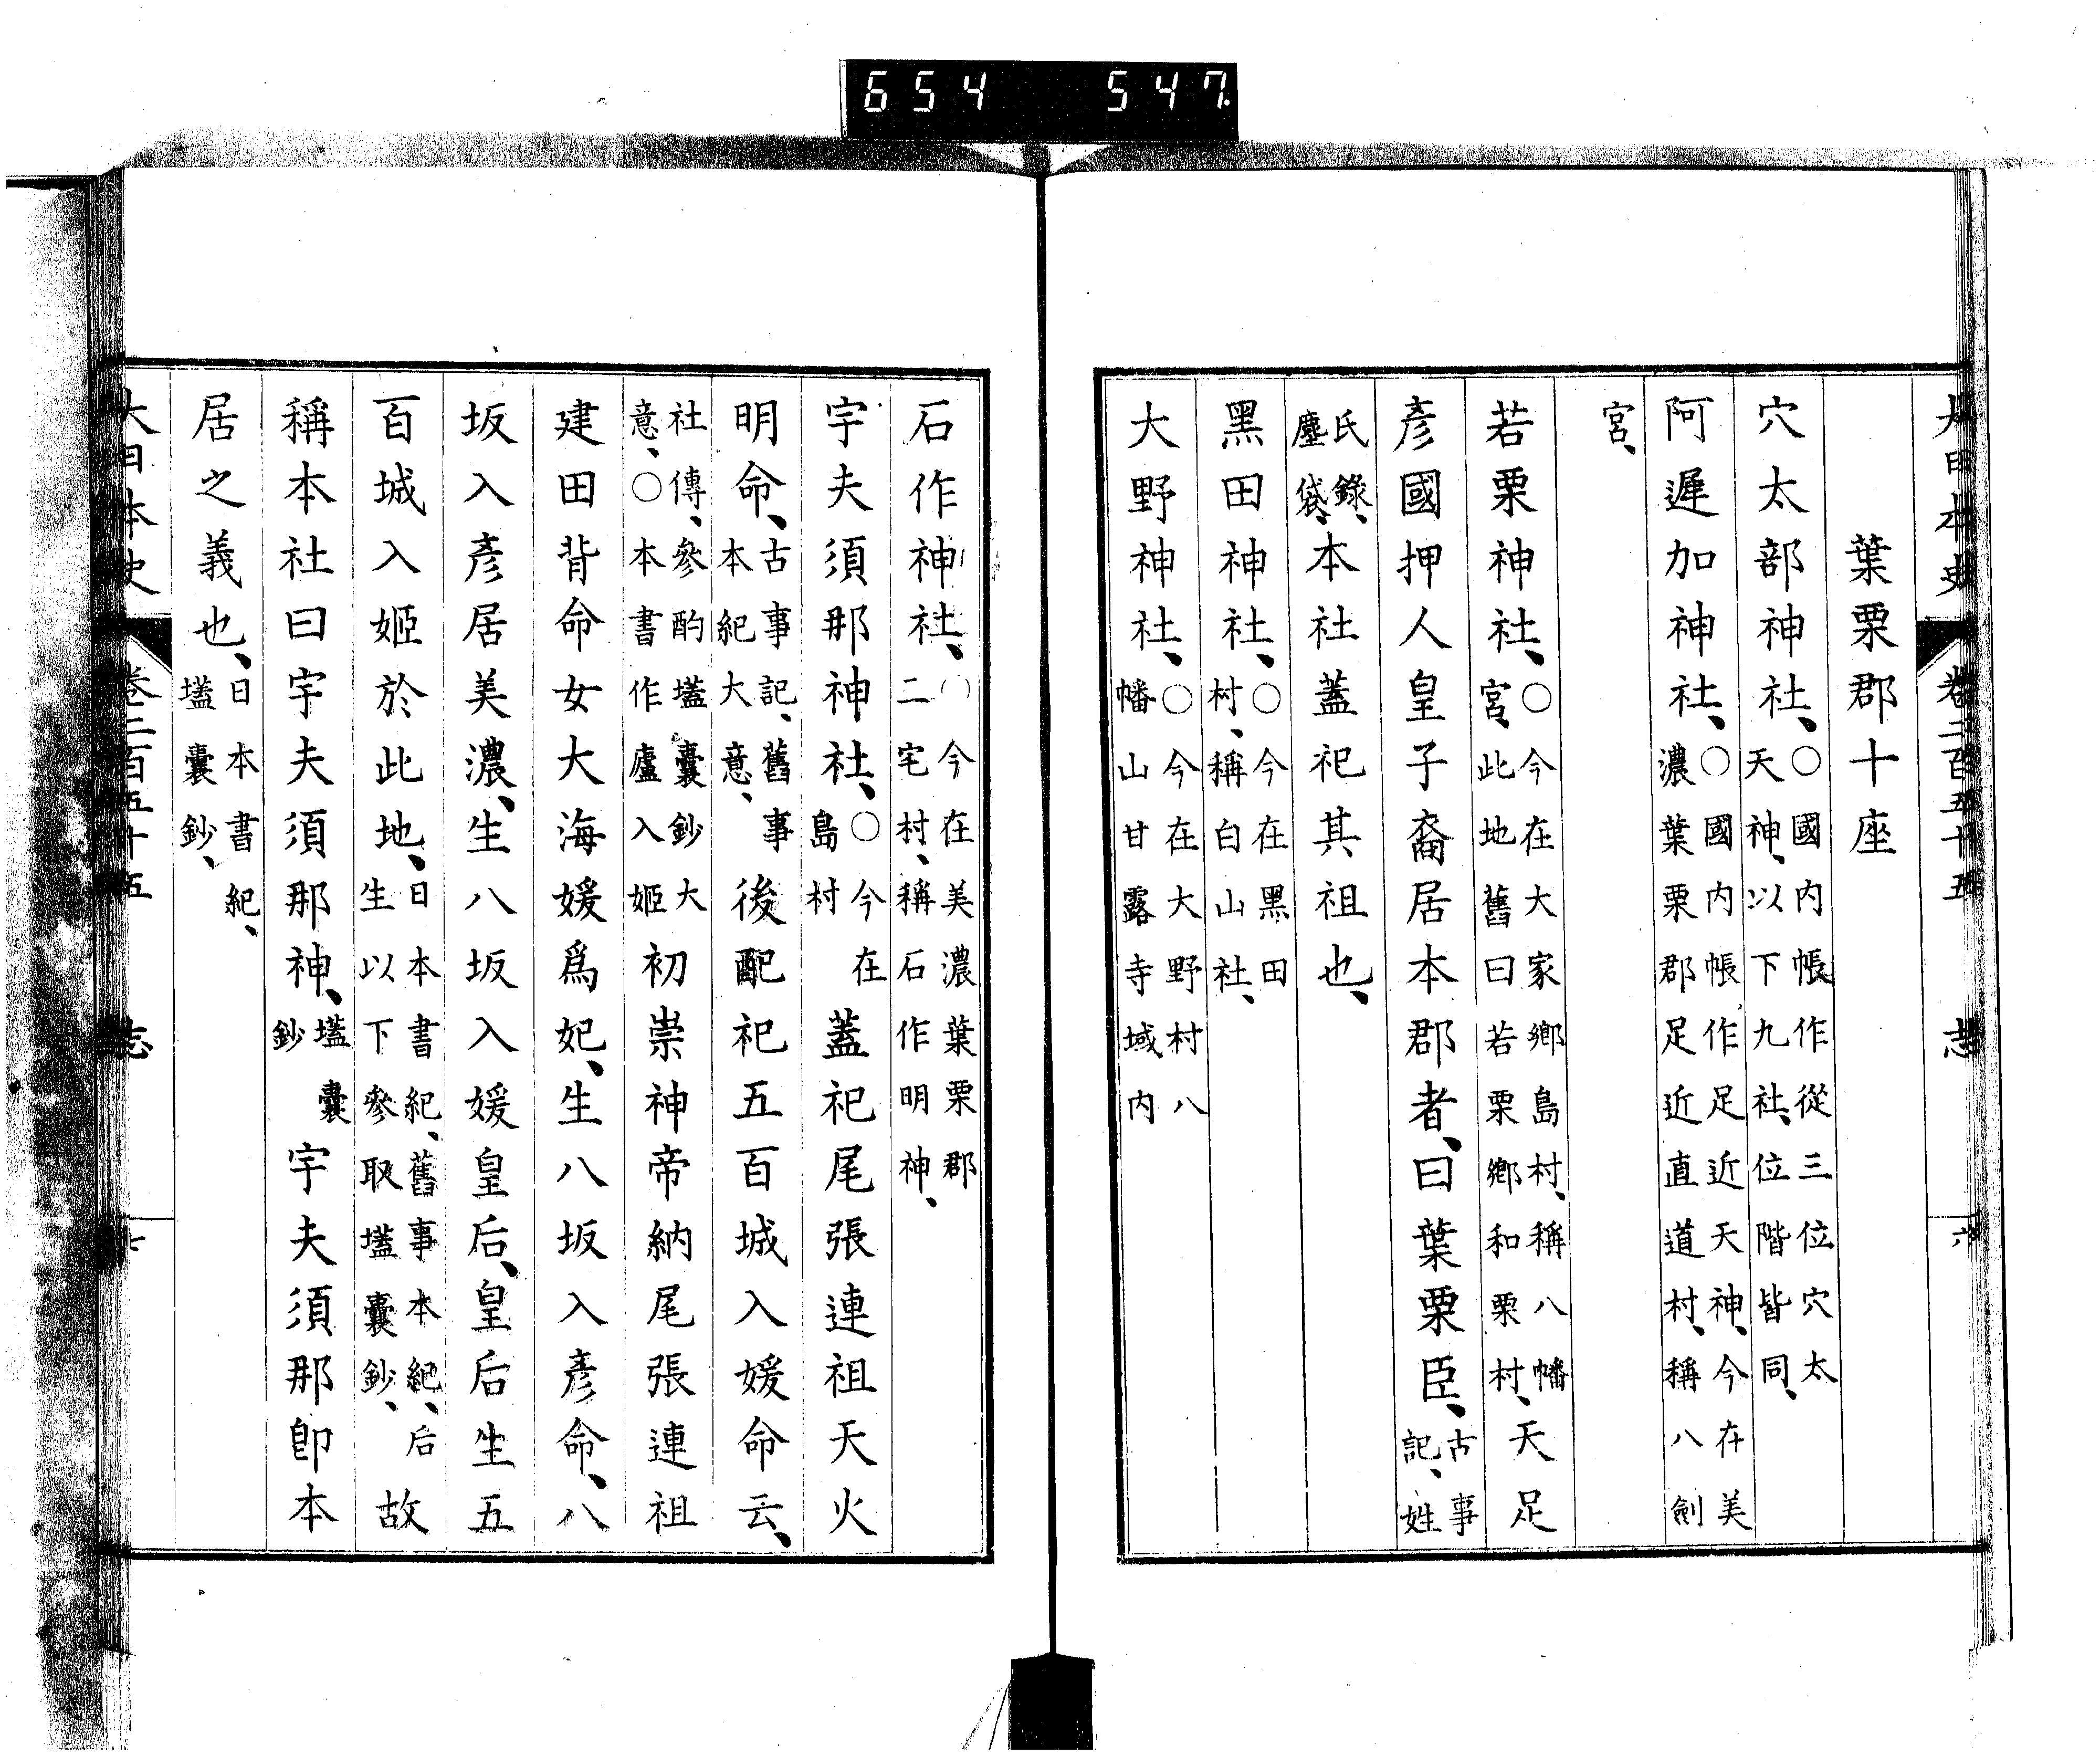 654 547
大日本史 卷二百五十五 志 六
葉栗郡十座
穴太部神社、○國内帳作從三位穴太
天神、以下九社、位階皆同、
阿遲加神社、○國内帳作足近天神、今在美
濃葉栗郡足近直道村、稱八劍
宮、
若栗神社、○今在大家鄉島村、稱八幡
宮、此地舊曰若栗鄉和栗村、天足
彥國押人皇子裔居本郡者、曰葉栗臣、古事
記、姓
氏錄、
塵袋、本社蓋祀其祖也、
黑田神社、○今在黑田
村、稱白山社、
大野神社、○今在大野村八
幡山甘露寺域内
石作神社、○今在美濃葉栗郡
二宅村、稱石作明神、
宇夫須那神社、○今在
島村 蓋祀尾張連祖天火
明命、古事記、舊事
本紀大意、後配祀五百城入媛命云、
社傳、參酌壒囊鈔大
意、○本書作廬入姬 初崇神帝納尾張連祖
建田背命女大海媛爲妃、生八坂入彥命、八
坂入彥居美濃、生八坂入媛皇后、皇后生五
百城入姬於此地、日本書紀、舊事本紀、后
生以下參取壒囊鈔、故
稱本社曰宇夫須那神、壒囊
鈔 宇夫須那卽本
居之義也、日本書紀、
壒囊鈔、
大日本史 卷二百五十五 志 七